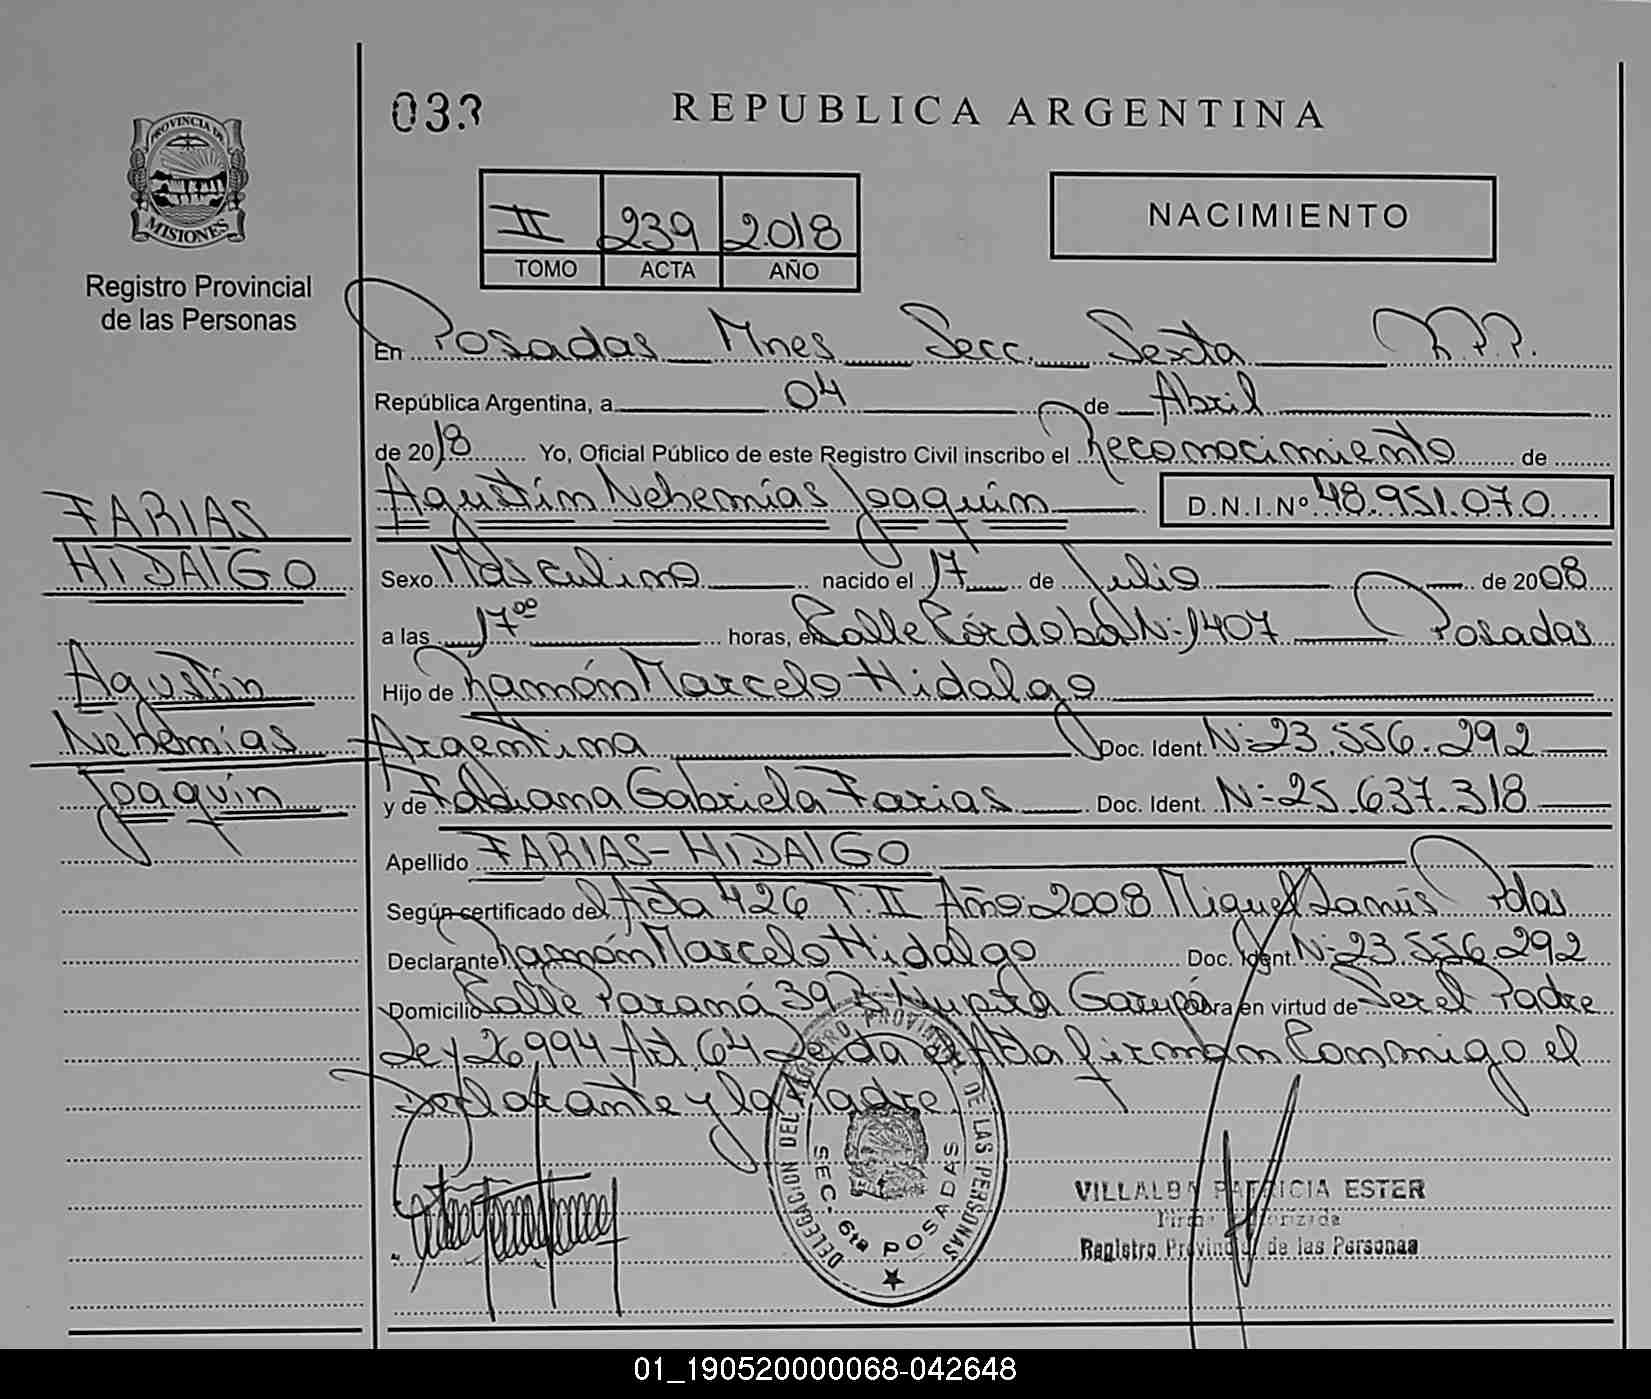 033
REPUBLICA ARGENTINA
PROVINCIA DE
MISIONES
Registro Provincial
de las Personas
II 239 2018
TOMO ACTA AÑO
NACIMIENTO
En Posadas Mnes Secc. Sexta R.P.P.
República Argentina, a 04 de Abril
de 2018 Yo, Oficial Público de este Registro Civil inscribo el Reconocimiento de
Agustín Nehemías Joaquín D.N.I.Nº 48.951.070
FARIAS
HIDALGO
Agustín
Nehemías
Joaquín
Sexo Masculino nacido el 17 de Julio de 2008
a las 17ºº horas, en Calle Córdoba Nº 1407 Posadas
Hijo de Ramón Marcelo Hidalgo
Argentina Doc. Ident. Nº 23.556.292
y de Fabiana Gabriela Farias Doc. Ident. Nº 25.637.318
Apellido FARIAS-HIDALGO
Según certificado del Acta 426 T.II Año 2008 Miguel Lanús Pdas
Declarante Ramón Marcelo Hidalgo Doc. Ident. Nº 23.556.292
Domicilio Calle Paraná 393 Garupá obra en virtud de Ser el Padre
Ley 26994 Art. 64 Leída el Acta firman Conmigo el
Declarante y la Madre.
DELEGACION DEL REGISTRO PROVINCIAL DE LAS PERSONAS
SEC. 6ta POSADAS
VILLALBA PATRICIA ESTER
Firma Autorizada
Registro Provincial de las Personas
01_190520000068-042648